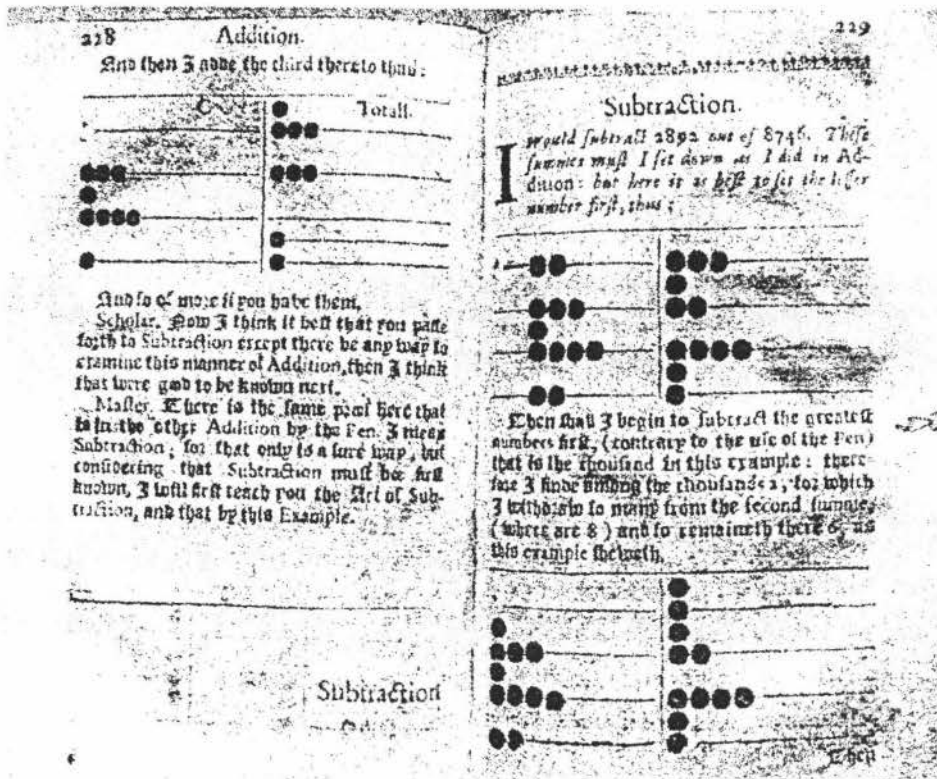 228 Addition.
And then I adde the third thereto thus:
C Totall.
And so of more if you have them.
Scholar. Now I think it best that you passe
forth to Subtraction except there be any way to
examine this manner of Addition, then I think
that were good to be known next.
Master. There is the same proof here that
is in the other Addition by the Pen. I mean
Subtraction; for that only is a sure way, but
considering that Subtraction must bee first
known, I will first teach you the Art of Sub-
traction, and that by this Example.
Subtraction
229
Subtraction.
I would subtract 2892 out of 8746. These
summes must I set down as I did in Ad-
dition: but here it is best to set the lesser
number first, thus;
Then shall I begin to subtract the greatest
numbers first, (contrary to the use of the Pen)
that is the thousand in this example: there-
fore I finde among the thousands 2, for which
I withdraw so many from the second summe,
(where are 8) and so remaineth there 6, as
this example sheweth.
Then